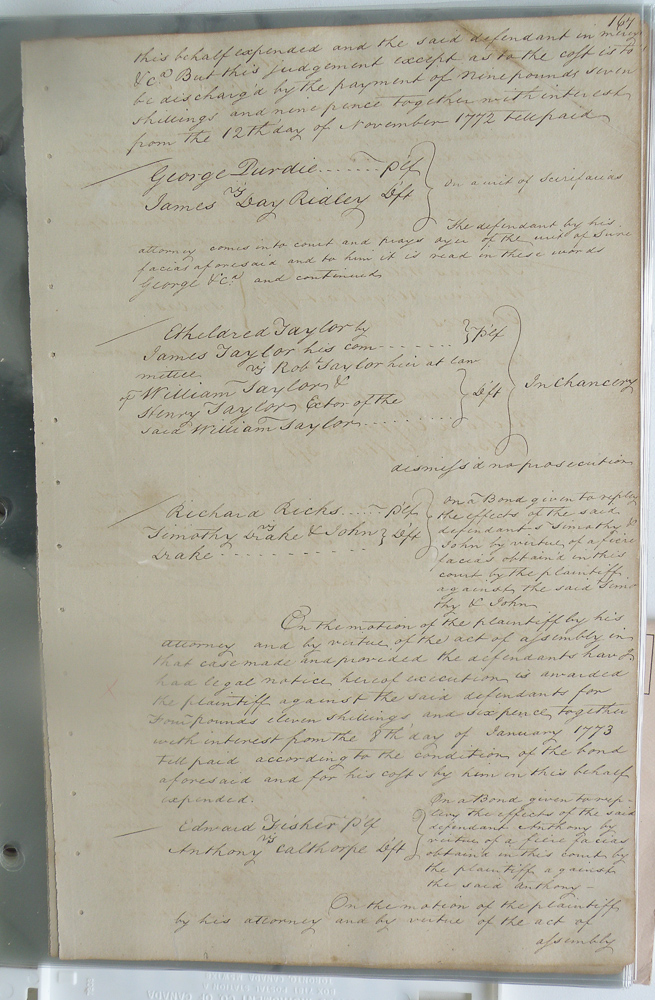 167
this behalf expended and the said defendant in mercy
&c.a But this judgement except as to the cost is to
be discharg'd by the payment of nine pounds seven
shillings and nine pence together with interest
from the 12th day of November 1772 till paid
George Purdie ...... Plf
vs
James Day Ridley Deft
On a writ of Scirefacias
The defendant by his
attorney comes into court and prays oyer of the writ of Scire
facias aforesaid and to him it is read in these words
George &c.a and continued
Etheldred Taylor by
James Taylor his com- ....... Plf
mittee vs Robt Taylor heir at law
of William Taylor &
Henry Taylor Exctor of the Deft
said William Taylor ..........
In Chancery
dismiss'd no prosecution
Richard Ricks ..... Plf
vs
Timothy Drake & John Deft
Drake ..........
On a Bond given to replevy
the effects of the said
defendant's Timothy &
John by virtue of a fiere
facias obtain'd in this
court by the plaintiff
against the said Timo
thy & John
On the motion of the plaintiff by his
attorney and by virtue of the act of assembly in
that case made and provided the defendants having
had legal notice hereof execution is awarded
the plaintiff against the said defendants for
Four pounds eleven shillings and six pence together
with interest from the 8th day of January 1773
till paid according to the condition of the bond
aforesaid and for his costs by him in this behalf
expended.
Edward Fisher Plf
vs
Anthony Calthorpe Deft
On a Bond given to rep-
levy the effects of the said
defendant Anthony by
virtue of a fiere facias
obtain'd in this court by
the plaintiff against
the said Anthony -
On the motion of the plaintiff
by his attorney and by virtue of the act of
assembly